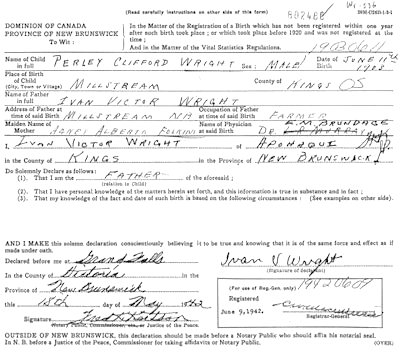 (Read carefully instructions on other side of this form)
DOMINION OF CANADA
PROVINCE OF NEW BRUNSWICK
To Wit:
In the Matter of the Registration of a Birth which has not been registered within one year
after such birth took place; or which took place before 1920 and was not registered at the
time;
And in the Matter of the Vital Statistics Regulations.
Name of Child in full PERLEY CLIFFORD WRIGHT Sex: MALE Date of Birth JUNE 11th 1903
Place of Birth of Child (City, Town or Village) MILLSTREAM County of KINGS
Name of Father in full IVAN VICTOR WRIGHT
Address of Father at time of said Birth MILLSTREAM NB Occupation of Father at time of said Birth FARMER
Maiden Name of Mother ALBERTA Name of Physician at said Birth DR. BRUNDAGE
I, IVAN VICTOR WRIGHT of APOHAQUI
in the County of KINGS in the Province of NEW BRUNSWICK
Do Solemnly Declare as follows:
(1) That I am the FATHER of the aforesaid;
(relation to Child)
(2) That I have personal knowledge of the matters herein set forth, and this information is true in substance and in fact;
(3) That my knowledge of the fact and date of such birth is based on the following circumstances: (See examples on other side)
AND I MAKE this solemn declaration conscientiously believing it to be true and knowing that it is of the same force and effect as if
made under oath.
Declared before me at Grand Falls
In the County of Victoria
Province of New Brunswick
this 15th day of May 1942
Ivan V Wright
(Signature of declarant)
(For use of Reg. Gen. only) 19420609
Registered
June 9, 1942.
Registrar-General
Notary Public, Commissioner, or Justice of the Peace.
OUTSIDE OF NEW BRUNSWICK, this declaration should be made before a Notary Public who should affix his notarial seal.
In N. B. before a Justice of Peace, Commissioner for taking affidavits or Notary Public. (OVER)